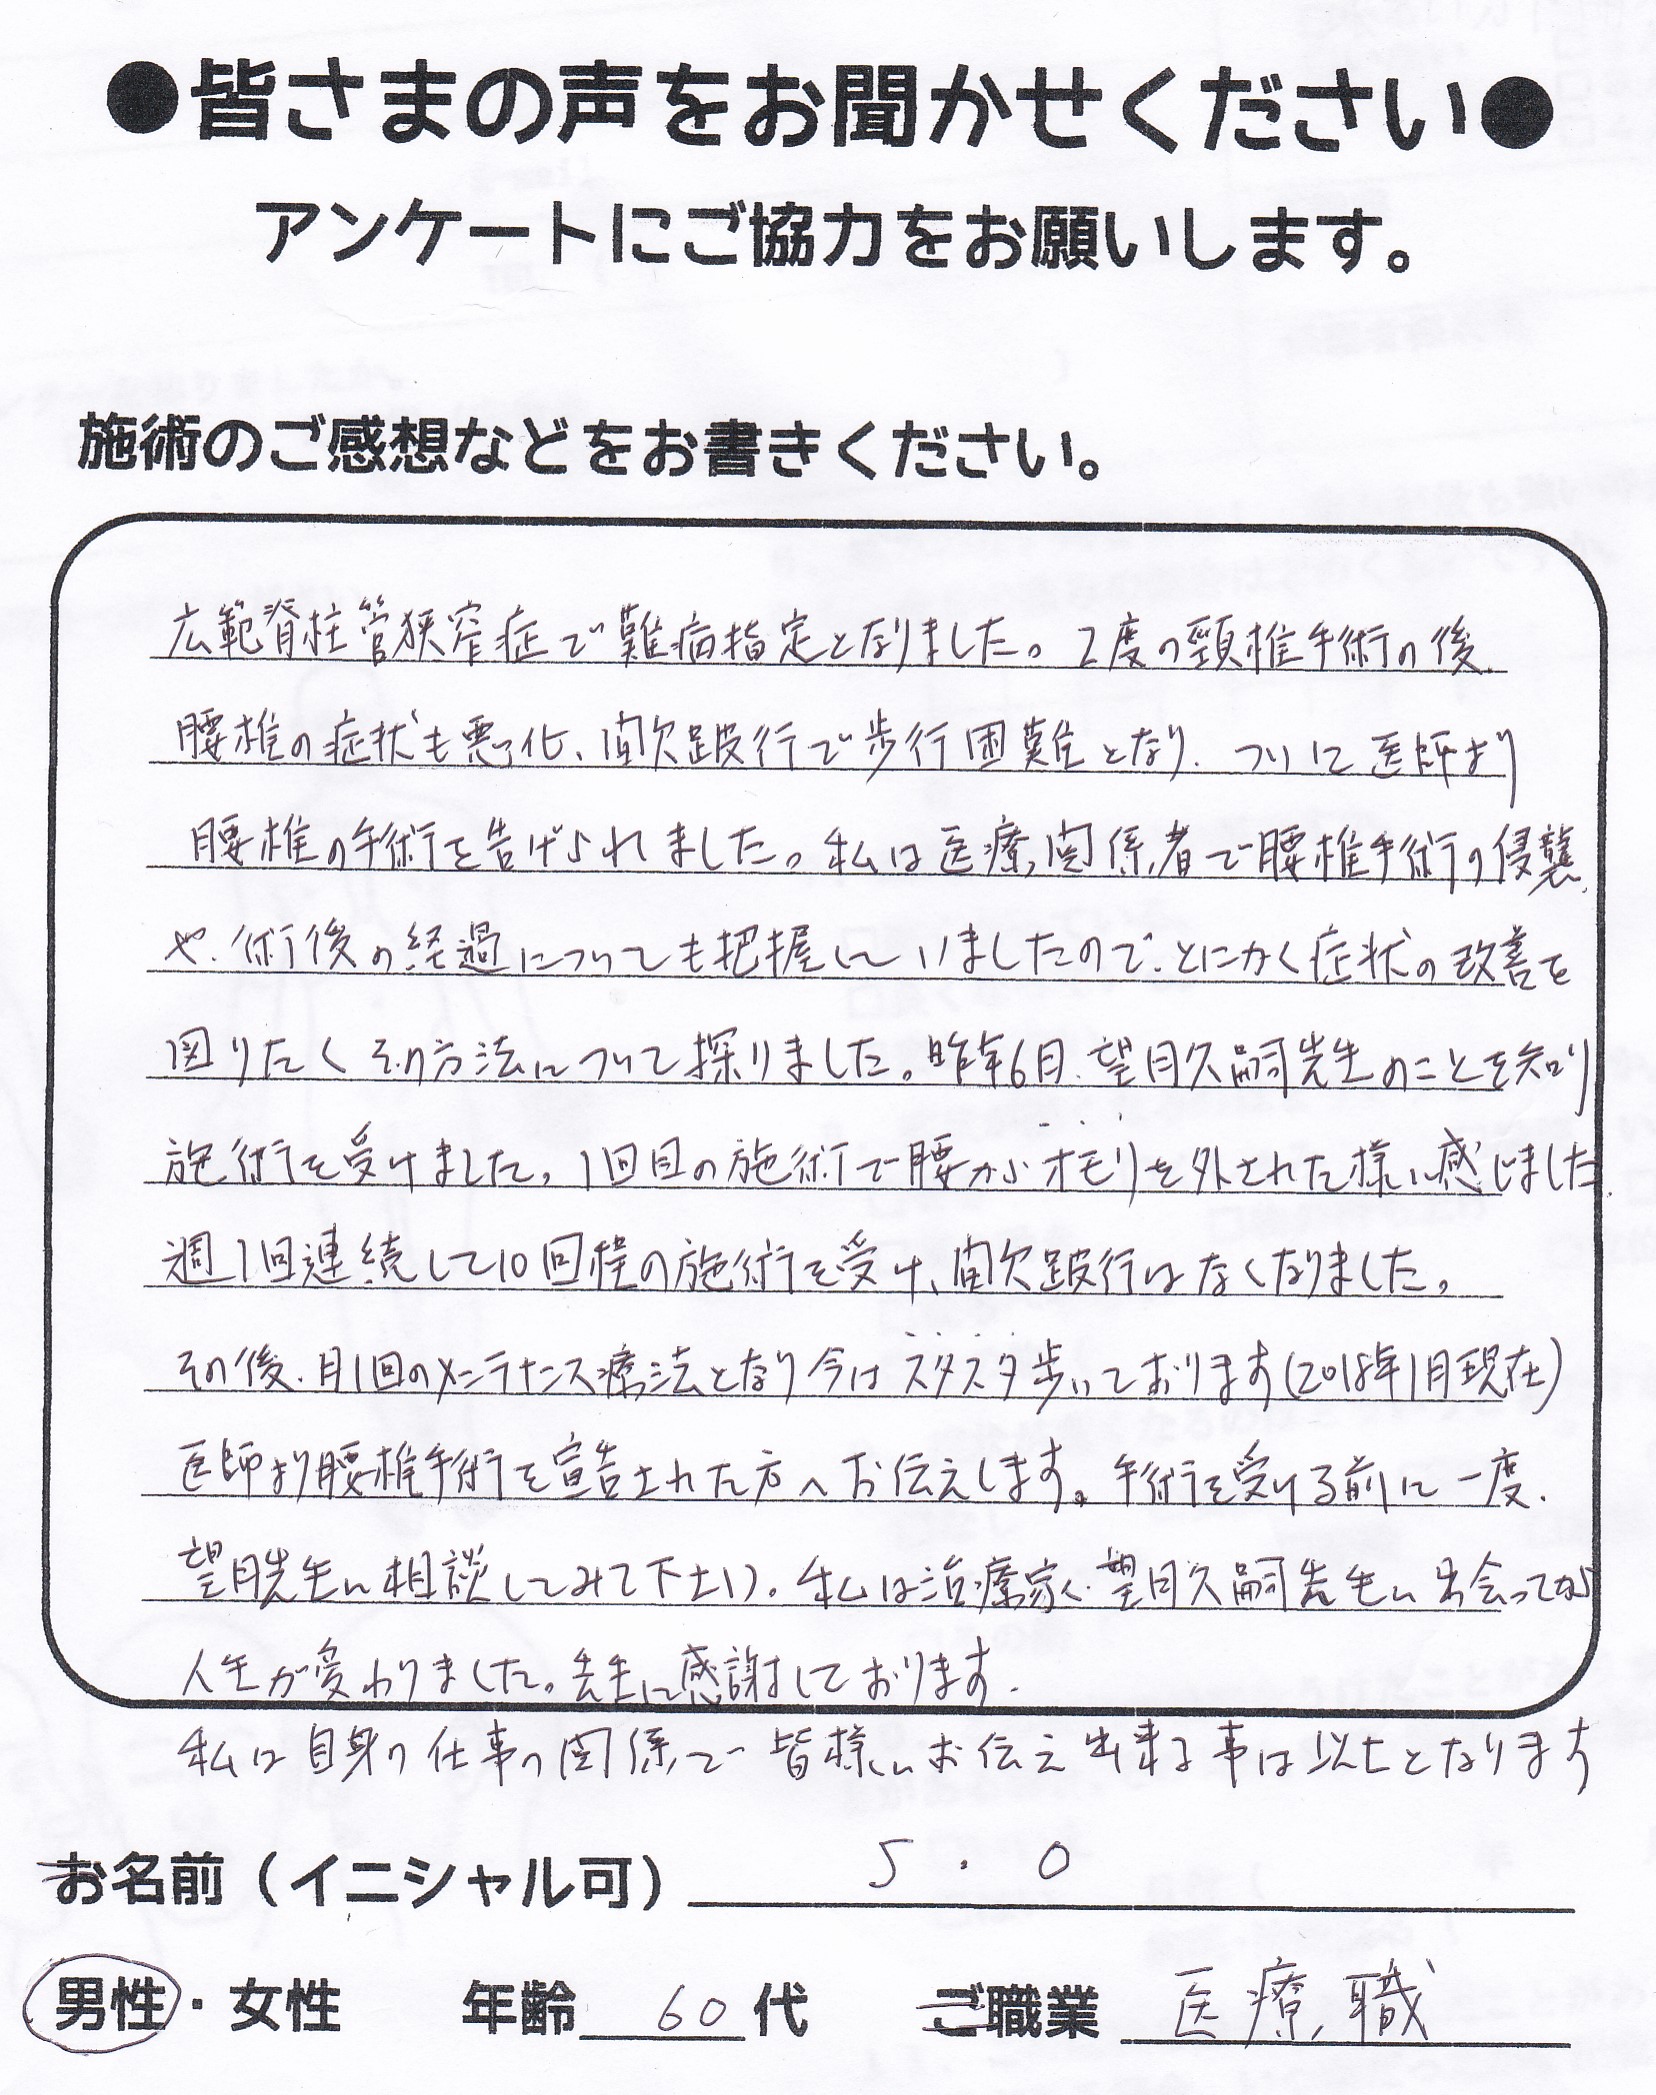 ●皆さまの声をお聞かせください●
アンケートにご協力をお願いします。
施術のご感想などをお書きください。
広範脊柱管狭窄症で難病指定となりました。2度の頸椎手術の後、
腰椎の症状も悪化、間欠跛行で歩行困難となり、ついに医師より
腰椎の手術を告げられました。私は医療関係者で腰椎手術の侵襲
や、術後の経過についても把握していましたので、とにかく症状の改善を
図りたくその方法について探りました。昨年6月、望月久嗣先生のことを知り
施術を受けました。1回目の施術で腰からオモリを外された様に感じました。
週1回連続して10回程の施術を受け、間欠跛行はなくなりました。
その後、月1回のメンテナンス療法となり今はスタスタ歩いております(2018年1月現在)
医師より腰椎手術を宣告された方へお伝えします。手術を受ける前に一度、
望月先生に相談してみて下さい。私は治療家、望月久嗣先生に出会ってから
人生が変わりました。先生に感謝しております。
私は自身の仕事の関係で皆様にお伝え出来る事は以上となります
お名前（イニシャル可） S.O
男性・女性 年齢 60 代 ご職業 医療職